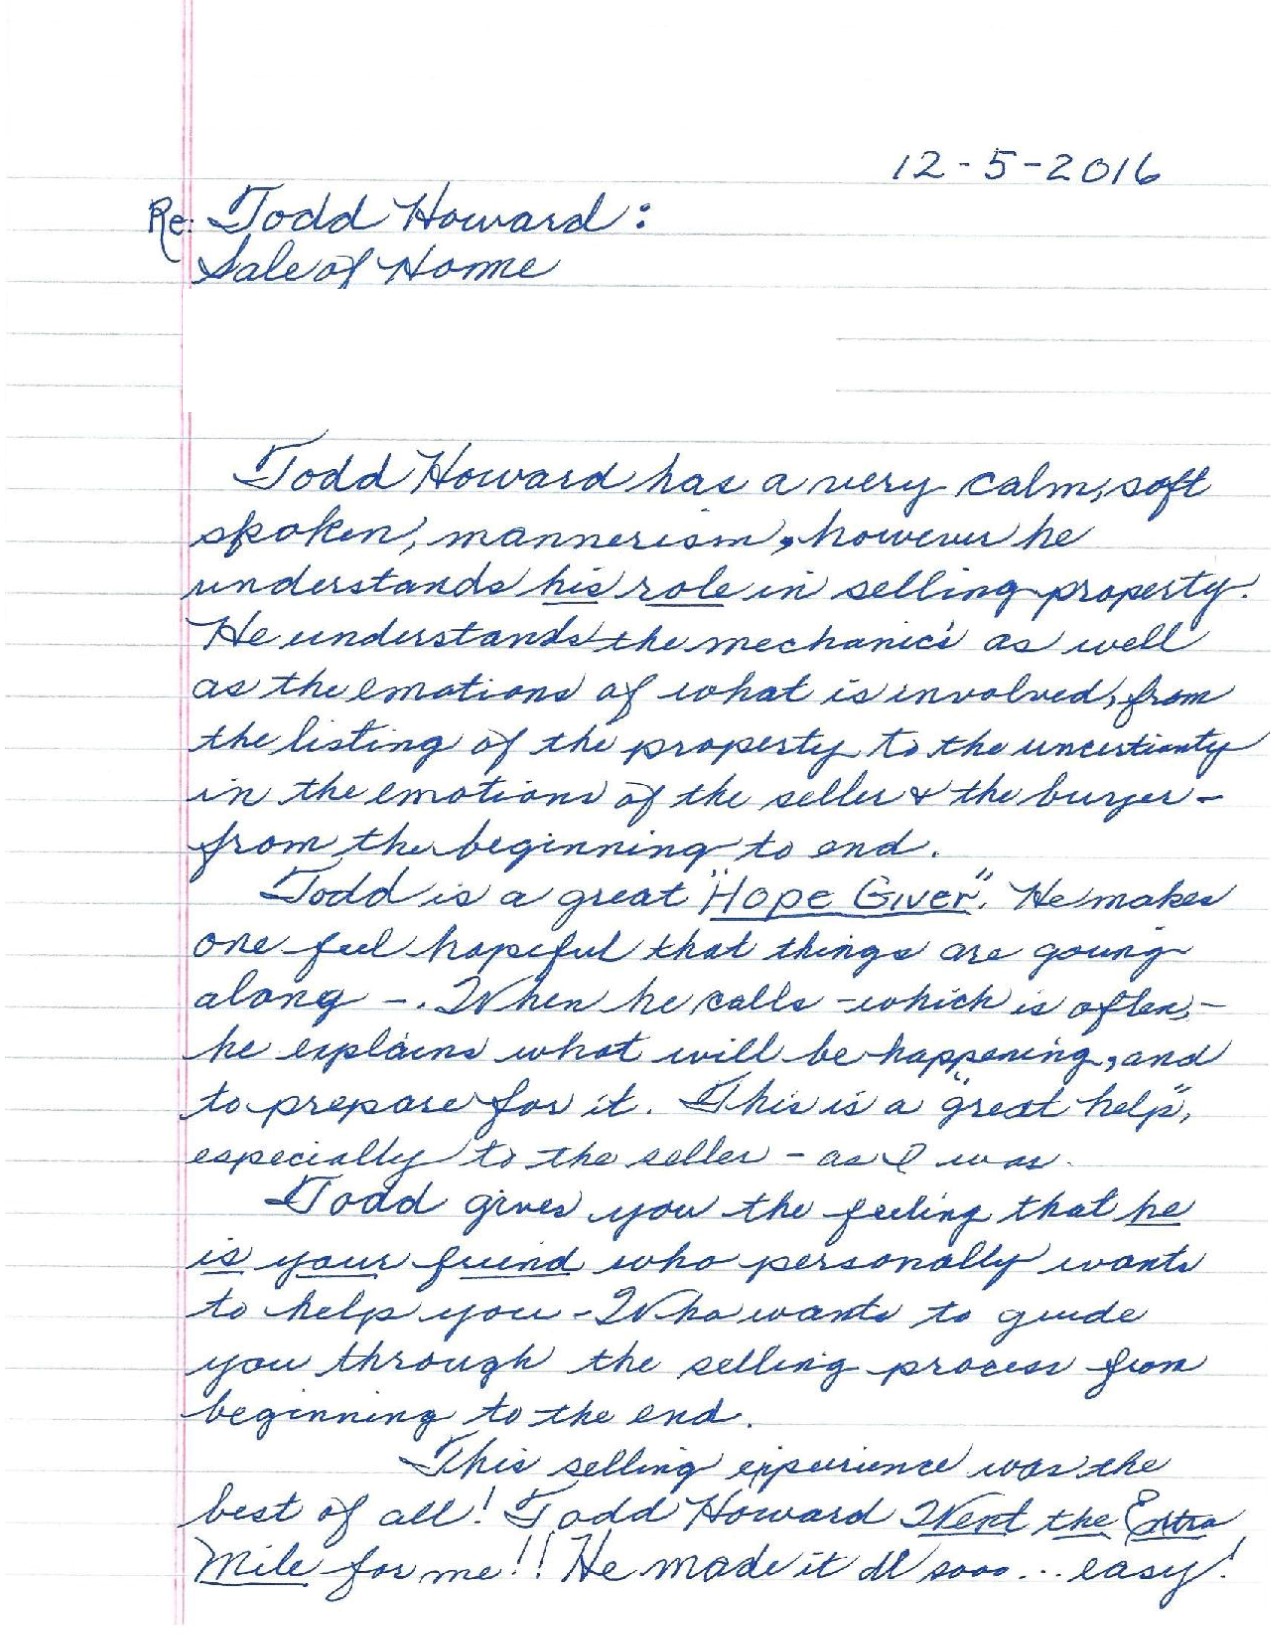 12-5-2016
Re: Todd Howard:
Sale of Home
Todd Howard has a very calm, soft
spoken, mannerism, however he
understands his role in selling property.
He understands the mechanics as well
as the emotions of what is involved, from
the listing of the property to the uncertianty
in the emotions of the seller & the buyer -
from the beginning to end.
Todd is a great "Hope Giver". He makes
one feel hopeful that things are going
along -. When he calls - which is often, -
he explains what will be happening, and
to prepare for it. This is a "great help",
especially to the seller - as I was.
Todd gives you the feeling that he
is your friend who personally wants
to help you - Who wants to guide
you through the selling process from
beginning to the end.
This selling experience was the
best of all! Todd Howard Went the Extra
Mile for me!! He made it all sooo... easy!